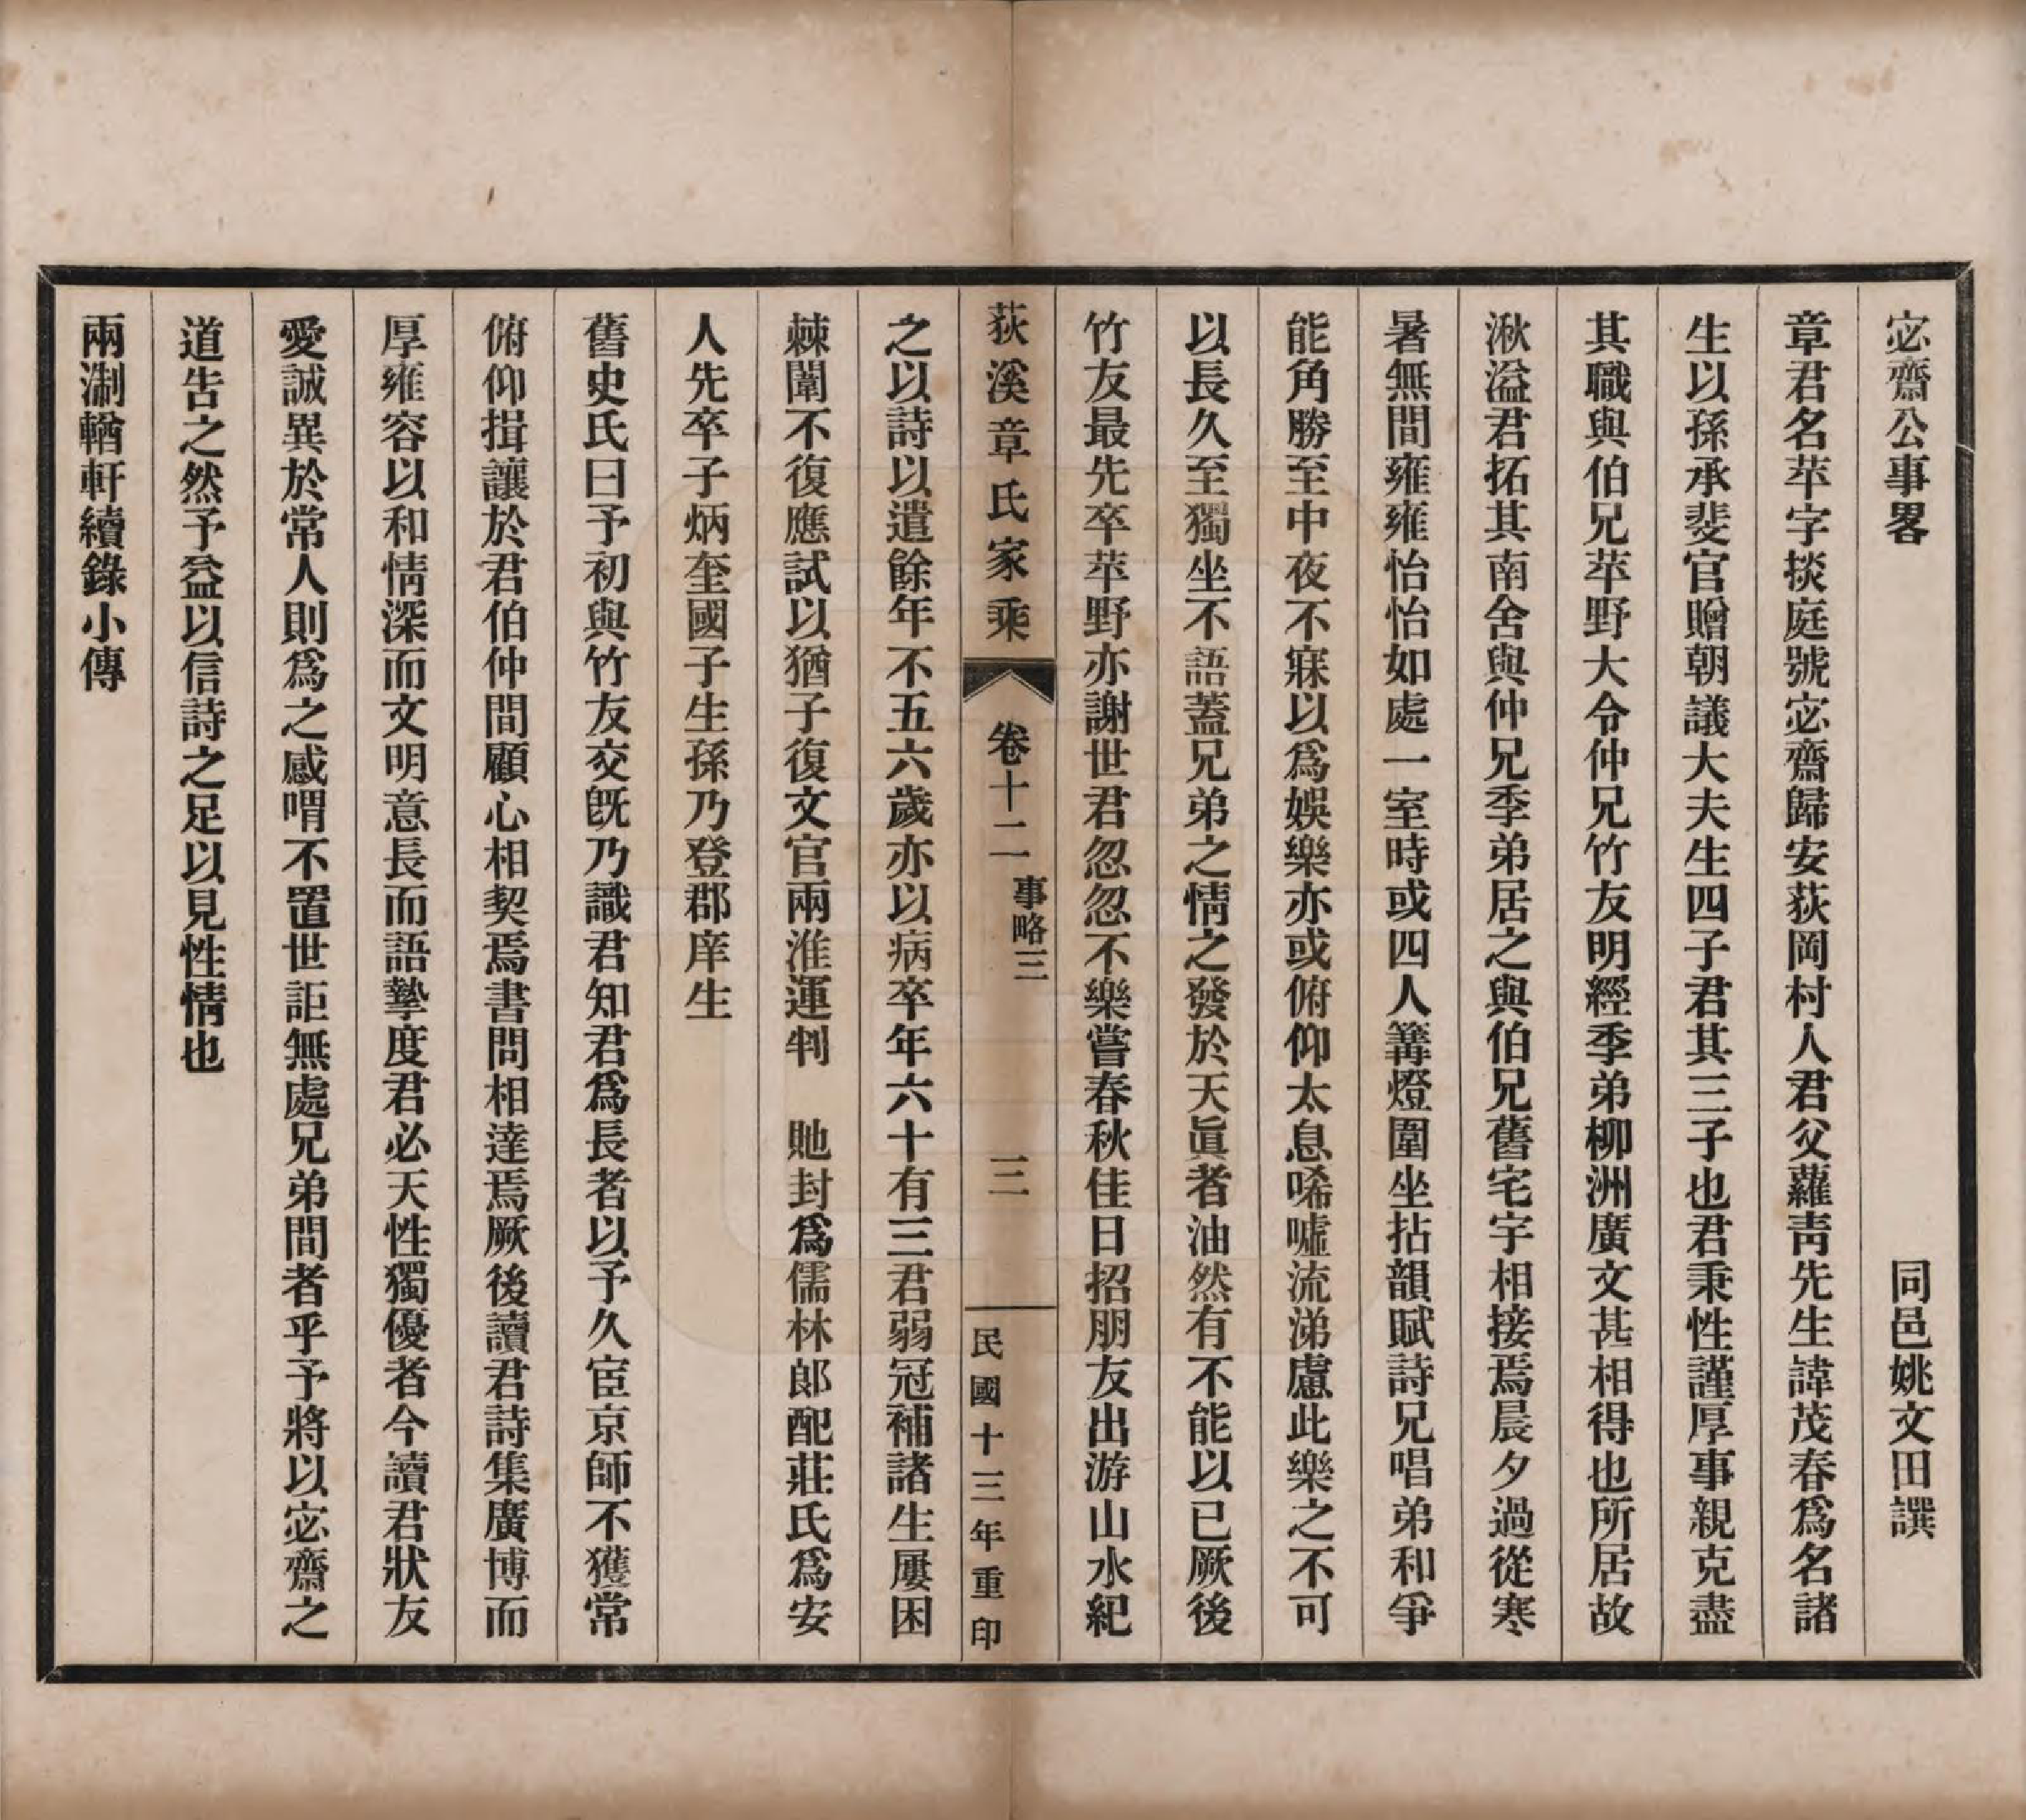 宓齋公事畧　同邑姚文田譔
章君名苹字掞庭號宓齋歸安荻岡村人君父蘿靑先生諱茂春爲名諸
生以孫承斐官贈朝議大夫生四子君其三子也君秉性謹厚事親克盡
其職與伯兄苹野大令仲兄竹友明經季弟柳洲廣文甚相得也所居故
湫溢君拓其南舍與仲兄季弟居之與伯兄舊宅宇相接焉晨夕過從寒
暑無間雍雍怡怡如處一室時或四人篝燈圍坐拈韻賦詩兄唱弟和爭
能角勝至中夜不寐以爲娛樂亦或俯仰太息唏噓流涕慮此樂之不可
以長久至獨坐不語蓋兄弟之情之發於天眞者油然有不能以已厥後
竹友最先卒苹野亦謝世君忽忽不樂嘗春秋佳日招朋友出游山水紀
荻溪章氏家乘　卷十二　事略三　三　民國十三年重印
之以詩以遣餘年不五六歲亦以病卒年六十有三君弱冠補諸生屢困
棘闈不復應試以猶子復文官兩淮運判　貤封爲儒林郎配莊氏爲安
人先卒子炳奎國子生孫乃登郡庠生
舊史氏曰予初與竹友交旣乃識君知君爲長者以予久宦京師不獲常
俯仰揖讓於君伯仲間顧心相契焉書問相達焉厥後讀君詩集廣博而
厚雍容以和情深而文明意長而語摯度君必天性獨優者今讀君狀友
愛誠異於常人則爲之感喟不置世詎無處兄弟間者乎予將以宓齋之
道吿之然予益以信詩之足以見性情也
兩淛輶軒續錄小傳